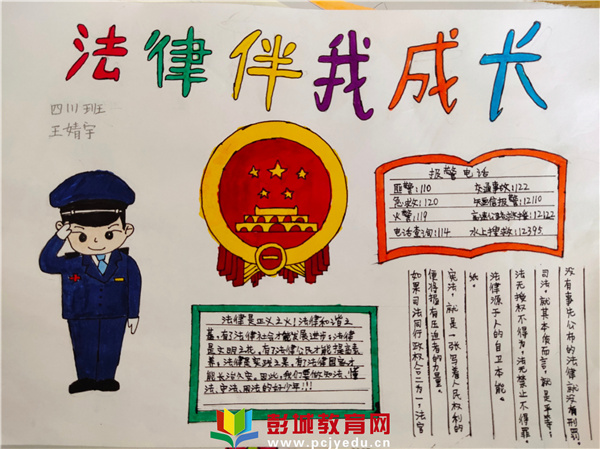 法律伴我成长
四川班
王婧宇
报警电话
匪警:110 交通事故:122
急救:120 短信报警:12110
火警:119 高速公路救援:12122
电话查询:114 水上搜救:12395
法律是正义之火!法律和谐之
基,有了法律社会才能发展进步;法律
是文明之花,有了法律公民才能提高素
养;法律是繁荣之果,有了法律国家才
能长治久安。因此,我们要做知法、懂
法、守法、用法的好少年!!!
没有事先公布的法律就没有刑罚。
司法,就其本质而言,就是平等;
法无授权不得为,法无禁止不得罪。
法律源于人的自卫本能。
纸。
宪法,就是一张写着人民权利的
便得拥有压迫者的力量。
如果司法同行政权合二为一,法官
彭城教育网
www.pcjyedu.cn